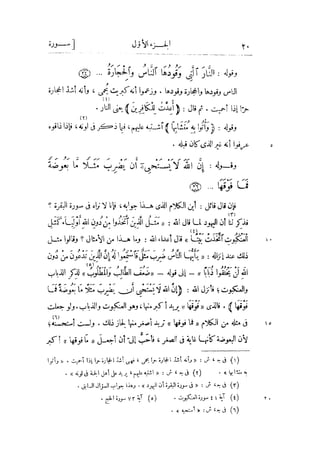 ٢٠ الجزء الأول [ سورة
وقوله : النَّارَ الَّتِي وَقُودُهَا النَّاسُ وَالْحِجَارَةُ ... (٢٤)
الناس وقودها والحجارة وقودها . وزعموا أنه كبريت يُحمى ، وأنه أشدّ الحجارة
حرّا إذا أحميت . ثم قال : ﴿ أُعِدَّتْ لِلْكَافِرِينَ ﴾ يعنى النار .
وقوله : ﴿ وَأُتُوا بِهِ مُتَشَابِهًا ﴾ اشتبه عليهم ، فيما ذكر فى لونه ، فإذا ذاقوه
٥ عرفوا أنه غير الذى كان قبله .
وقوله : إِنَّ اللَّهَ لَا يَسْتَحْيِي أَنْ يَضْرِبَ مَثَلًا مَا بَعُوضَةً
فَمَا فَوْقَهَا ... (٢٦)
فإن قال قائل : أين الكلام الذى هذا جوابه ، فإنا لا نراه فى سورة البقرة ؟
فذكر لنا أن اليهود لما قال الله : « مَثَلُ الَّذِينَ اتَّخَذُوا مِنْ دُونِ اللَّهِ أَوْلِيَاءَ كَمَثَلِ
١٠ الْعَنْكَبُوتِ اتَّخَذَتْ بَيْتًا » قال أعداء الله : وما هذا من الأمثال ؟ وقالوا مثل
ذلك عند إنزاله : « يَا أَيُّهَا النَّاسُ ضُرِبَ مَثَلٌ فَاسْتَمِعُوا لَهُ إِنَّ الَّذِينَ تَدْعُونَ مِنْ دُونِ
اللَّهِ لَنْ يَخْلُقُوا ذُبَابًا » — إلى قوله — « ضَعُفَ الطَّالِبُ وَالْمَطْلُوبُ » لذكر الذباب
والعنكبوت ؛ فأنزل الله : ﴿ إِنَّ اللَّهَ لَا يَسْتَحْيِي أَنْ يَضْرِبَ مَثَلًا مَا بَعُوضَةً فَمَا
فَوْقَهَا ﴾ . فالذى « فَوْقَهَا » يريد أكبر منها ، وهو العنكبوت والذباب . ولو جعلت
١٥ فى مثله من الكلام « فما فوقها » تريد أصغر منها لجاز ذلك . ولست أستحسنه ؛
لأن البعوضة كأنها غاية فى الصغر ، فأحبّ إلىّ أن أجعل « مَا فَوْقَهَا » أكبر
(٣) فى ج ، ش : « فى سورة البقرة أن اليهود » . وهذا جواب السؤال السابق .
٢٠ (٤) آية ٤١ سورة العنكبوت . (٥) آية ٧٣ سورة الحج .
(٦) فى ج ، ش : « أستحبه » .